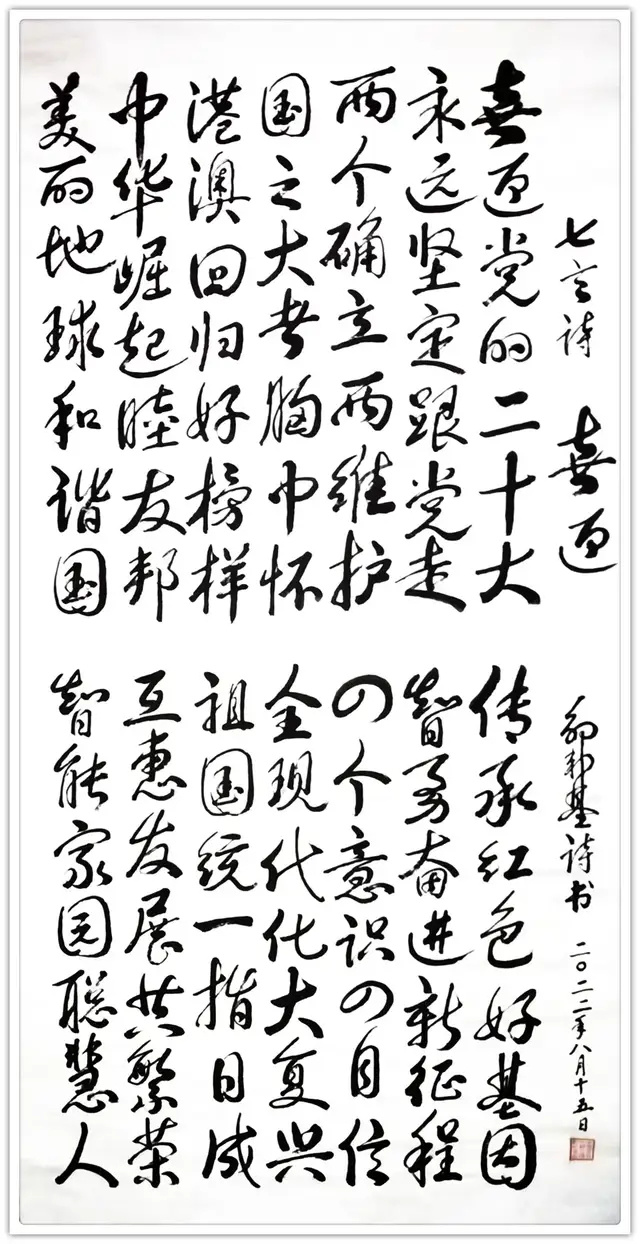 七言诗 喜迎
喜迎党的二十大 传承红色好基因
永远坚定跟党走 智勇奋进新征程
两个确立两维护 四个意识四自信
国之大者胸中怀 全现代化大复兴
港澳回归好榜样 祖国统一指日成
中华崛起睦友邦 互惠发展共繁荣
美丽地球和谐国 智能家园聪慧人
基诗书 二〇二二年八月十五日